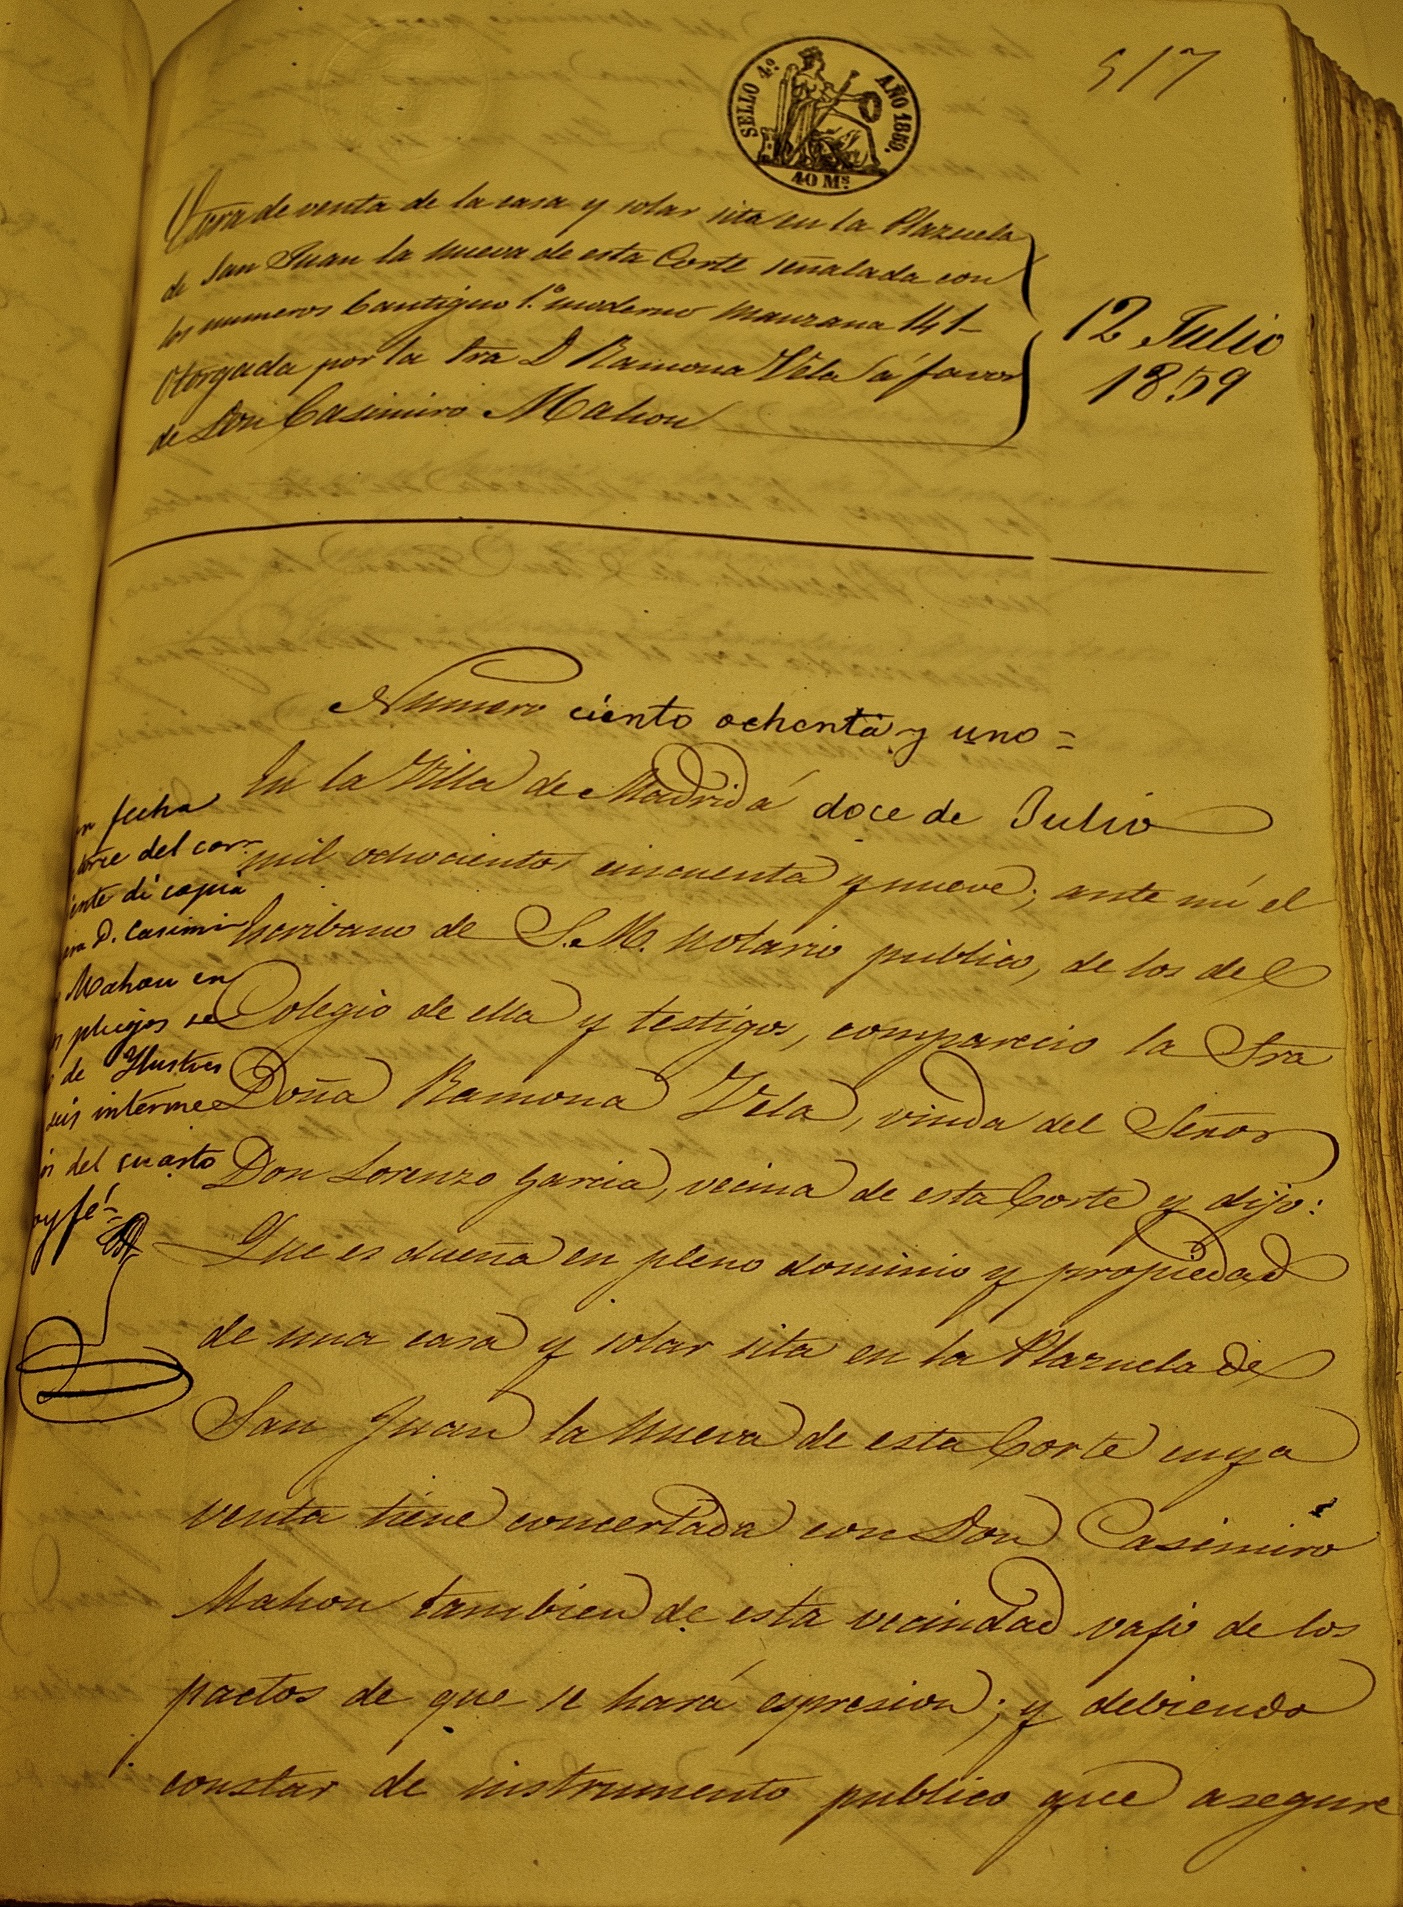 517
SELLO 4º AÑO 1859.
40 Ms
de venta de la casa y solar, sita en la Plazuela
de San Juan la nueva de esta Corte señalada con
los numeros 6 antiguo 1.º moderno manzana 141
Otorgada por la Sra D Ramona Vela á favor
de Don Casimiro Mahou
12 Julio
1859
Numero ciento ochenta y uno=
En la Villa de Madrid á doce de Julio
mil ochocientos cincuenta y nueve; ante mi el
Escribano de S.M. notario publico, de los del
Colegio de ella y testigos, comparecio la Sra
Doña Ramona Vela, viuda del Señor
Don Lorenzo Garcia, vecina de esta Corte y dijo:
Que es dueña en pleno dominio y propiedad
de una casa y solar sita en la Plazuela de
San Juan la nueva de esta Corte cuya
venta tiene concertada con Don Casimiro
Mahou tambien de esta vecindad vajo de los
pactos de que se hará espresion; y debiendo
constar de instrumento publico que asegure
fecha
del cor-
di copia
D. Casimi
Mahou en
pliegos se
de Ylustres
interme
del cuarto
fé=